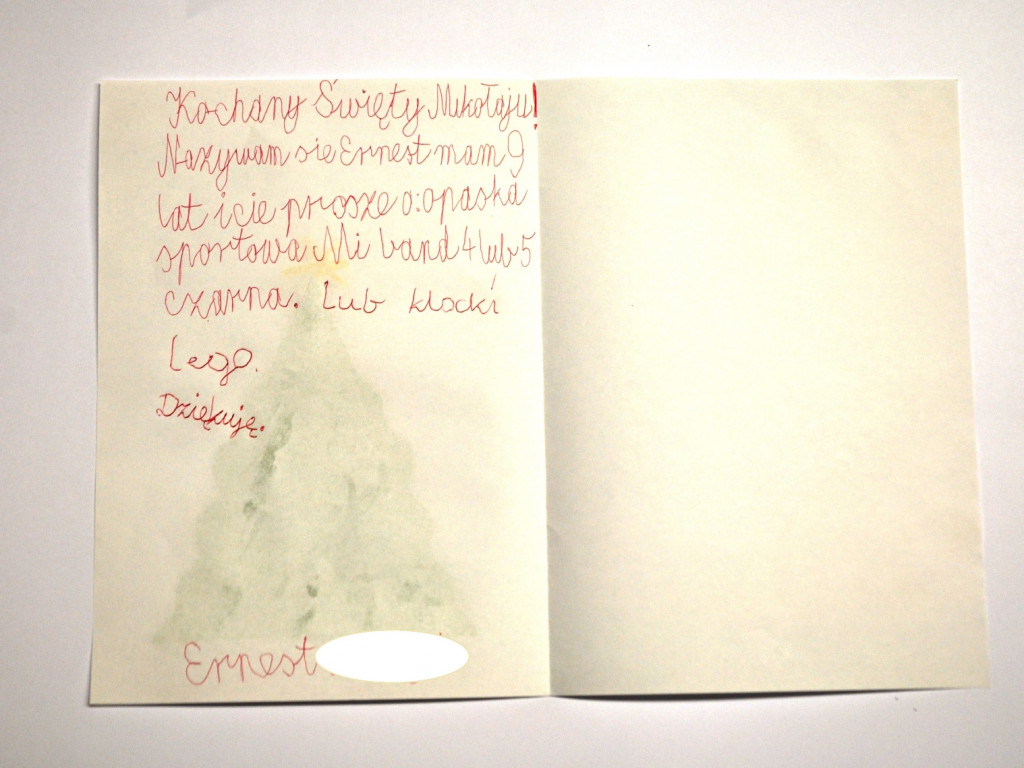 Kochany Święty Mikołaju!
Nazywam sie Ernest mam 9
lat i cie prosze o:opaska
sportowa Mi band 4 lub 5
czarna. Lub klocki
Lego.
Dziękuję.
Ernest